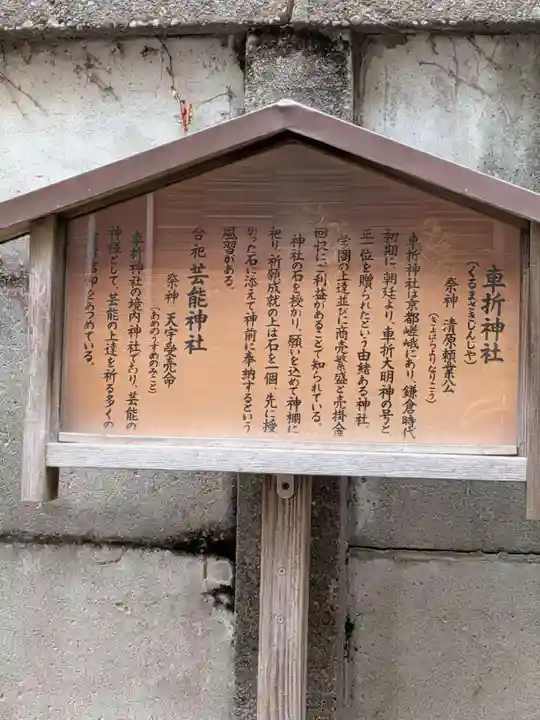 車折神社
(くるまざきじんじゃ)
祭神 清原頼業公
(きよはらよりなりこう)
車折神社は京都嵯峨にあり、鎌倉時代
初期に朝廷より、車折大明神の号と
正一位を贈られたという由緒ある神社。
学問の上達並びに商売繁盛と売掛金
回収にご利益があることで知られている。
神社の石を授かり、願いを込めて神棚に
祀り祈願成就の上は石を一個、先に授
かった石に添えて神前に奉納するという
風習がある。
合祀 芸能神社
祭神 天宇受売命
(あめのうずめのみこと)
車折神社の境内神社であり、芸能の
神様として、芸能の上達を祈る多くの
をあつめている。